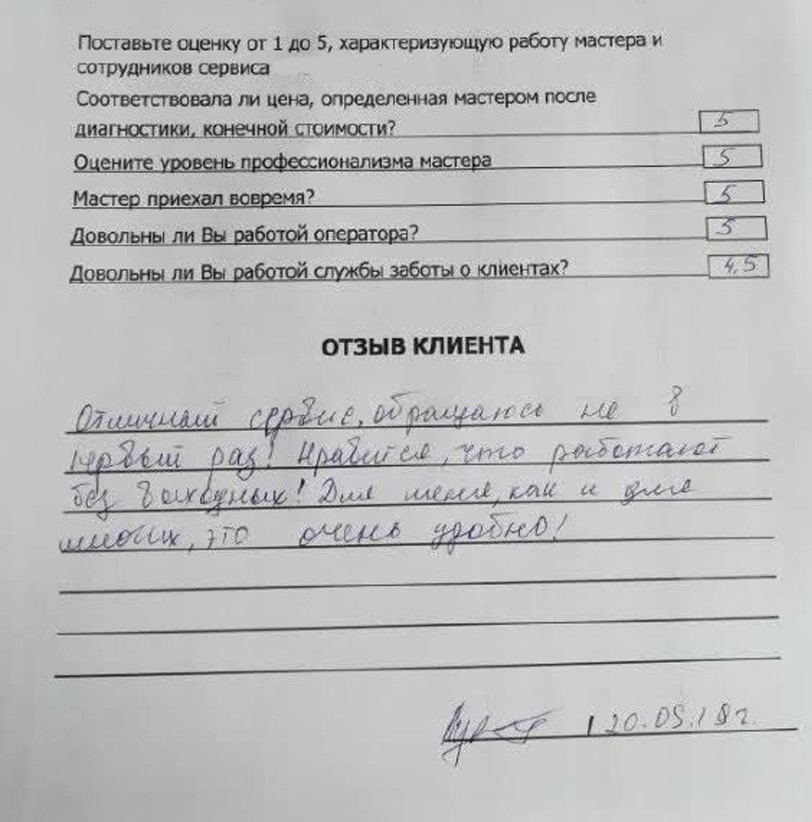 Поставьте оценку от 1 до 5, характеризующую работу мастера и
сотрудников сервиса
Соответствовала ли цена, определенная мастером после
диагностики, конечной стоимости? 5
Оцените уровень профессионализма мастера 5
Мастер приехал вовремя? 5
Довольны ли Вы работой оператора? 5
Довольны ли Вы работой службы заботы о клиентах? 4,5
ОТЗЫВ КЛИЕНТА
Отличный сервис, обращаюсь не в
первый раз! Нравится, что работают
без выходных! Для меня, как и для
многих, это очень удобно!
20.05.18г.